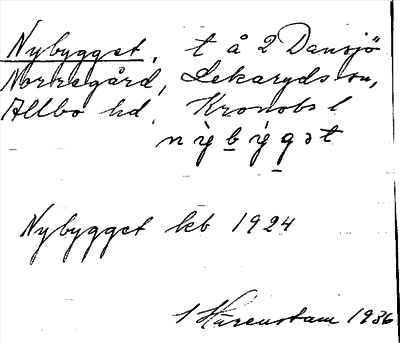 Nybygget, t å 2 Dansjö
Norregård, Lekaryds sn,
Allbo hd, Kronobs l
nỳbýgət
Nybygget kb 1924
Härenstam 1936